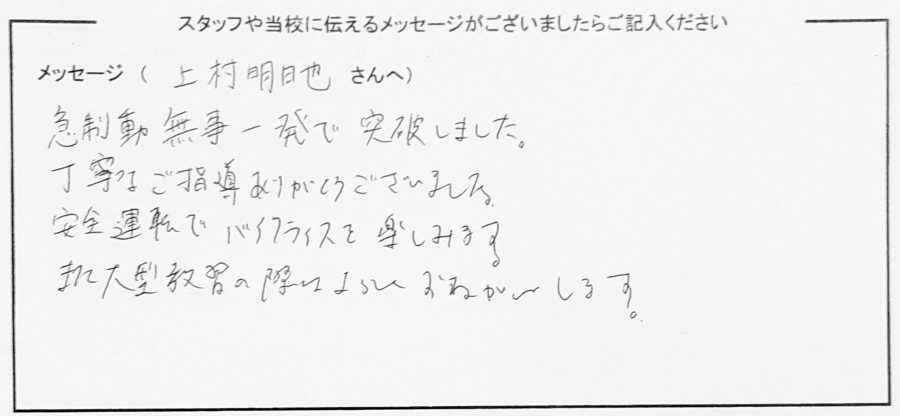 スタッフや当校に伝えるメッセージがございましたらご記入ください
メッセージ ( 上村明日也 さんへ)
急制動無事一発で突破しました。
丁寧なご指導ありがとうございました
安全運転でバイクライフを楽しみます
また大型教習の際はよろしくおねがいします。